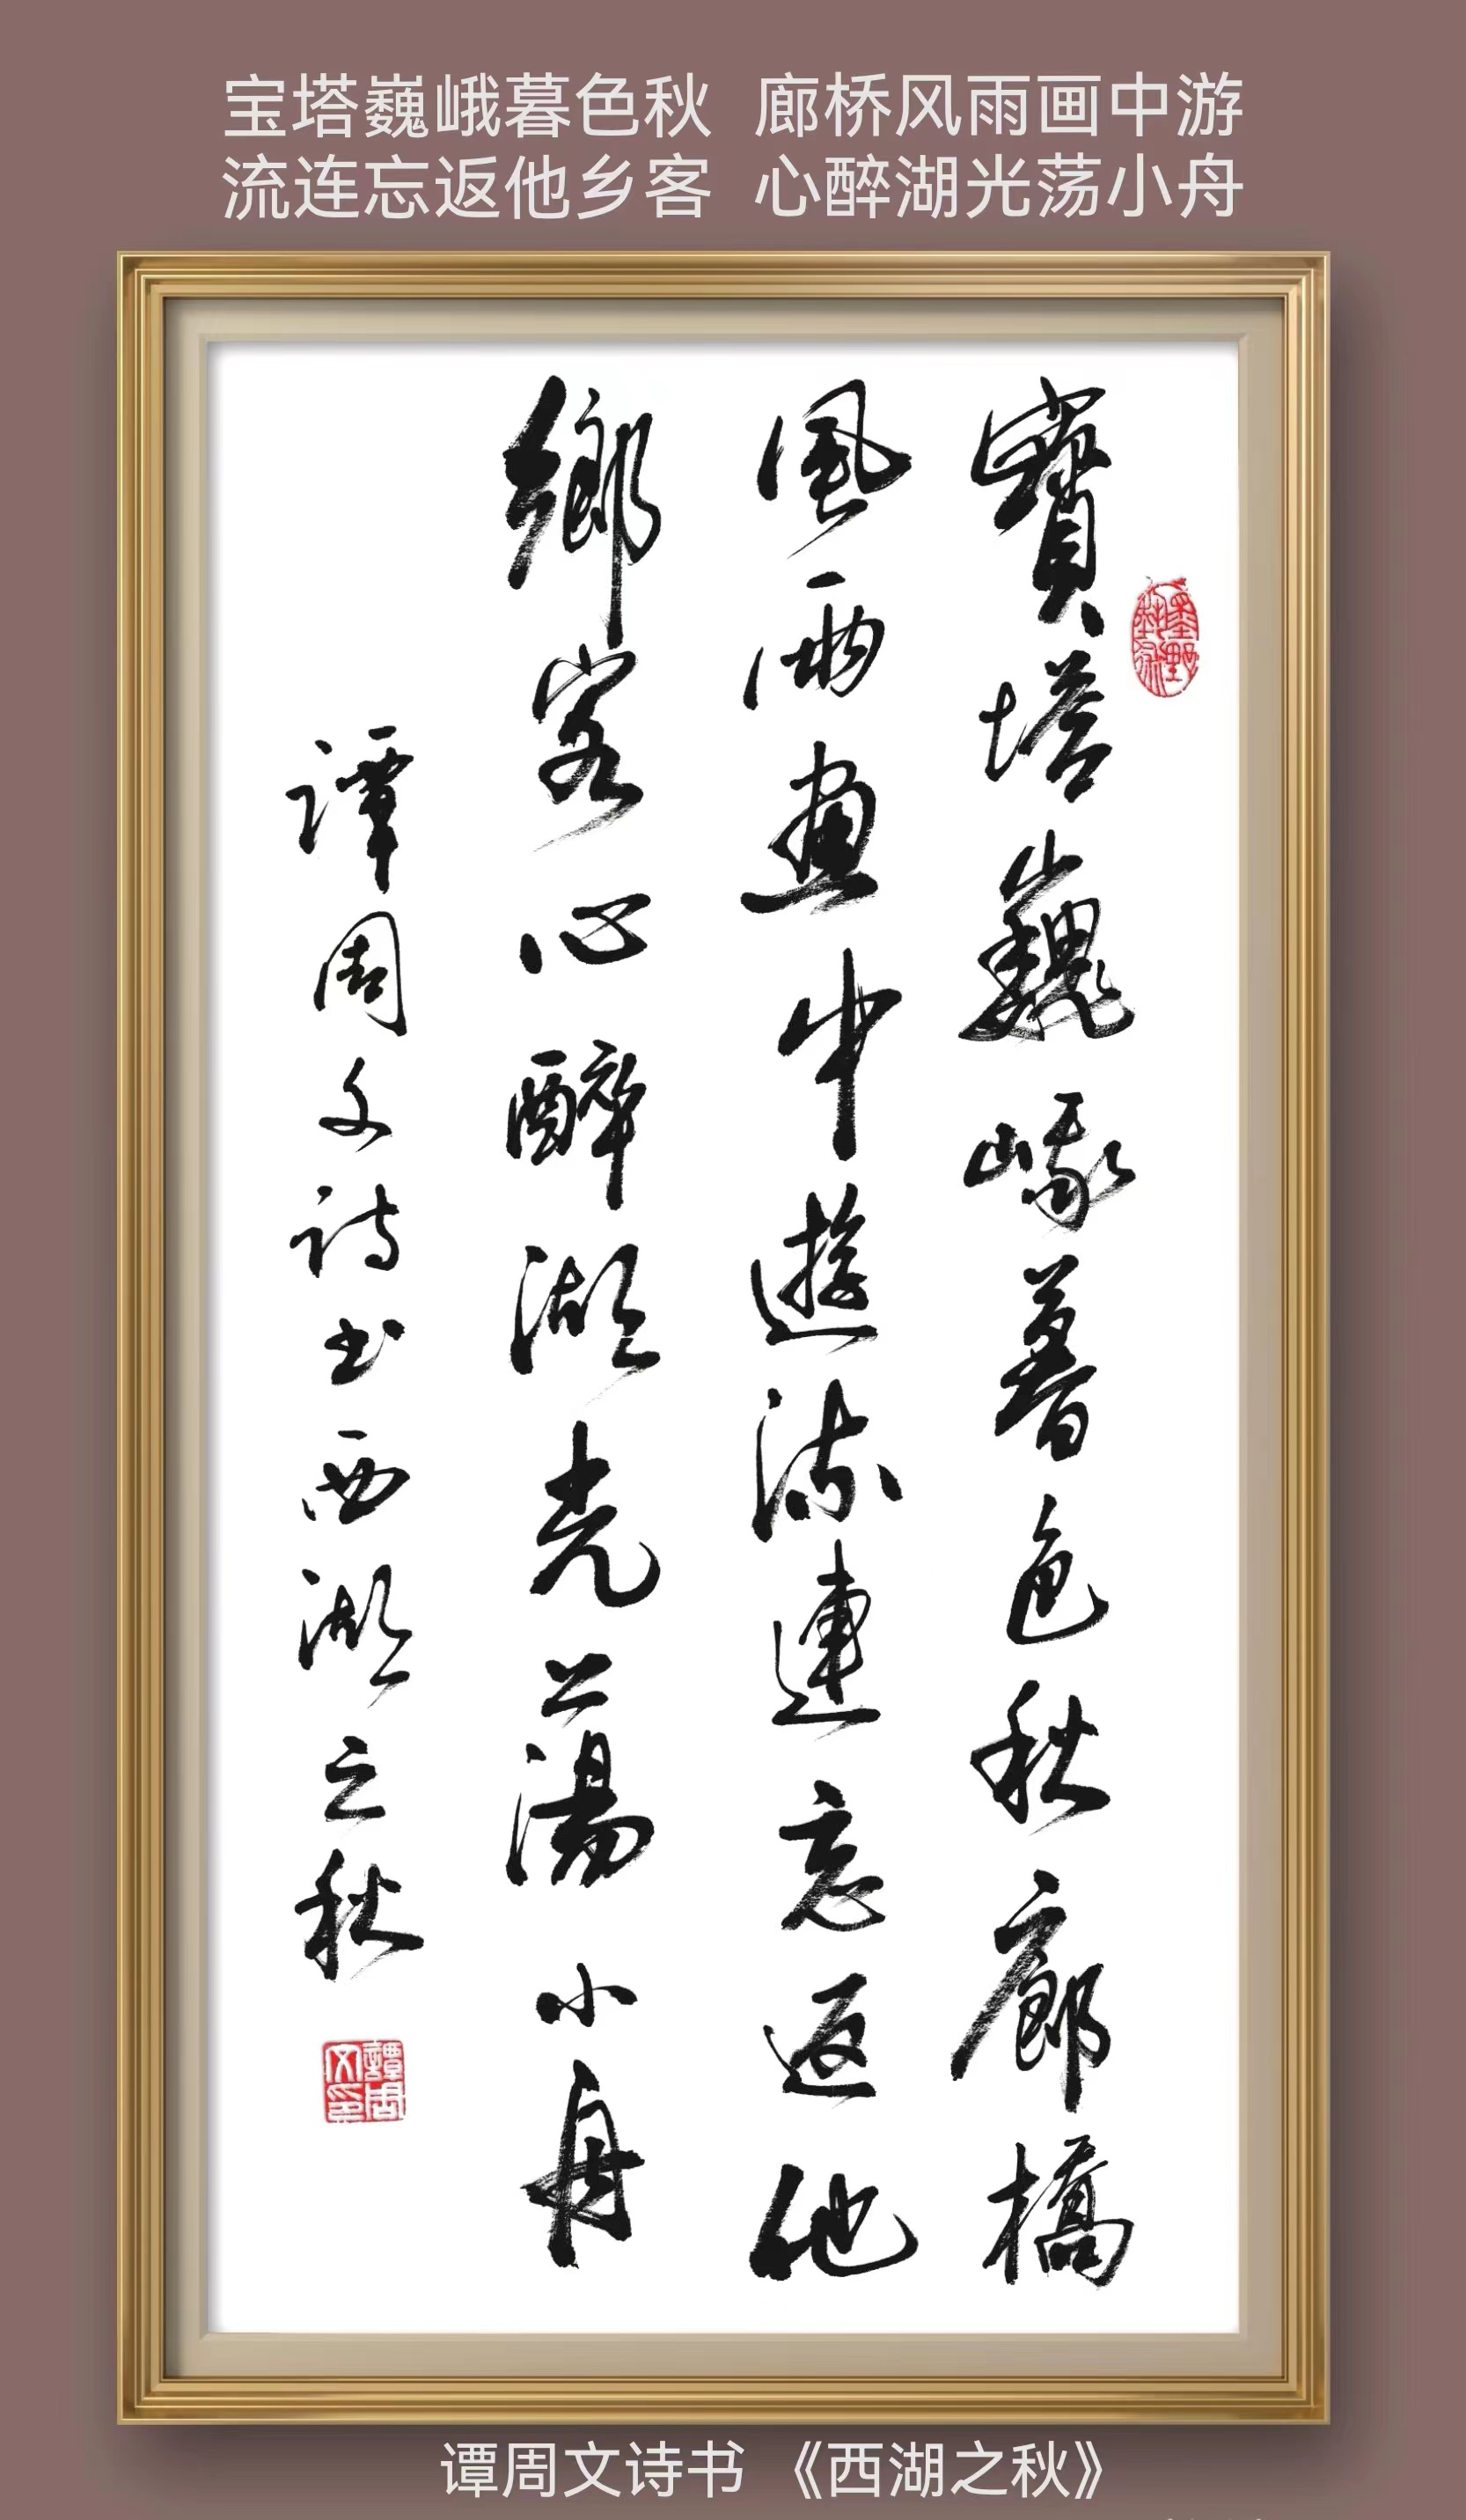 宝塔巍峨暮色秋 廊桥风雨画中游
流连忘返他乡客 心醉湖光荡小舟
寶塔巍峨暮色秋廊橋
風雨畫中遊流連忘返他
鄉客心醉湖光蕩小舟
譚周文诗书西湖之秋
譚周文印
谭周文诗书 《西湖之秋》